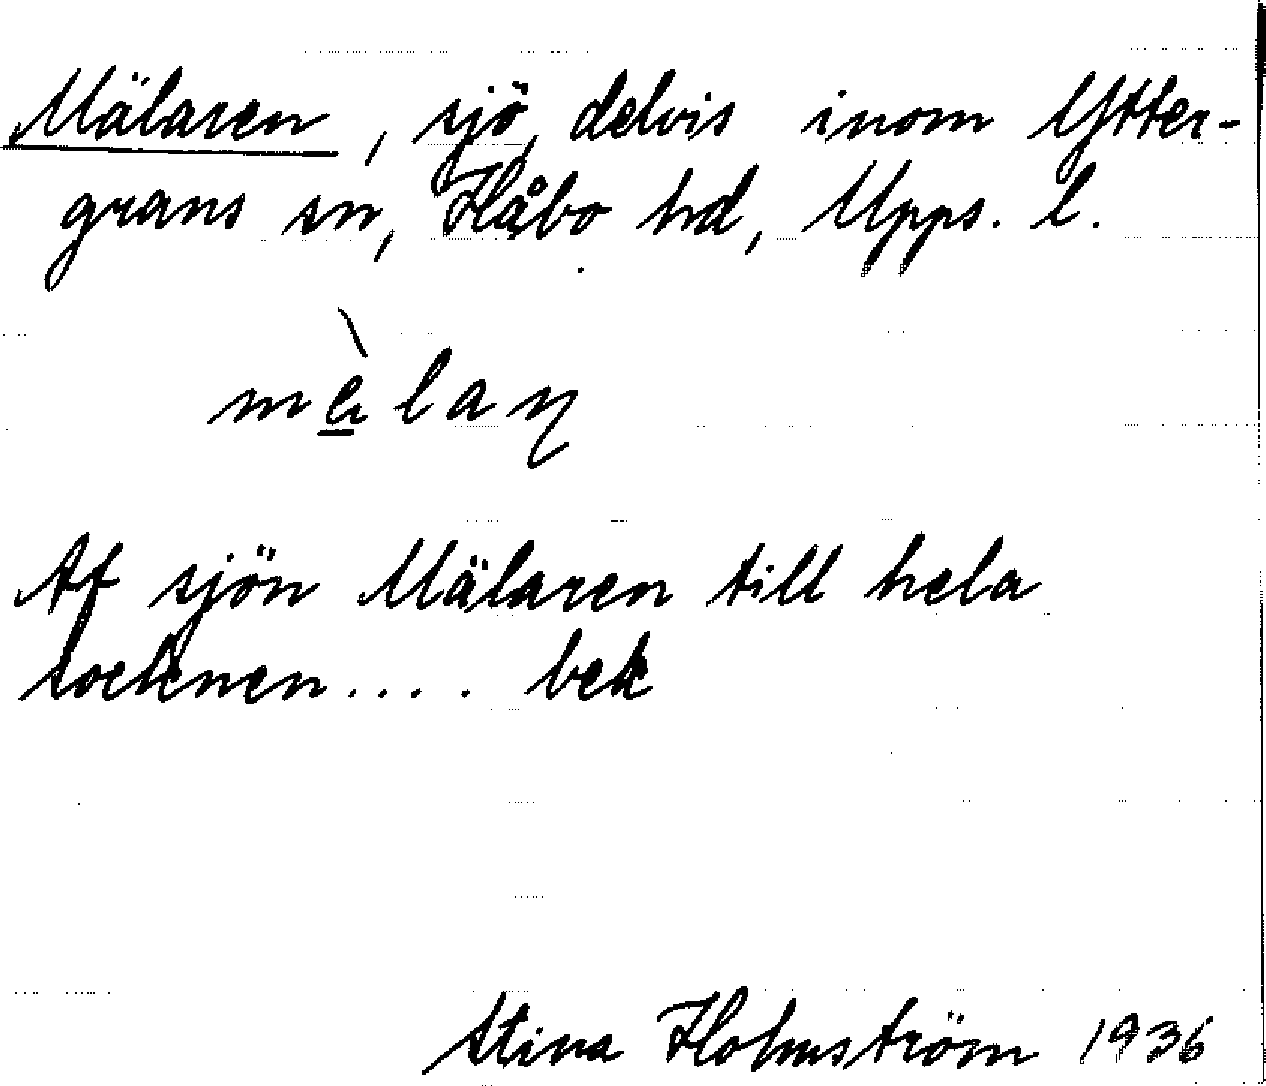 Mälaren, sjö, delvis inom Ytter-
grans sn, Håbo hd, Upps. l.
mèlaɳ
Af sjön Mälaren till hela
socknen.... bek
Stina Holmström 1936